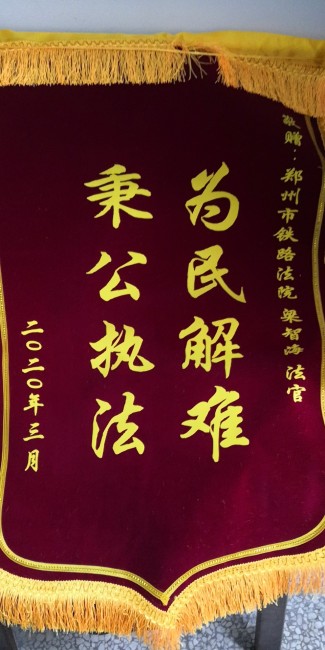 敬赠：郑州市铁路法院梁智海法官
为民解难
秉公执法
二〇二〇年三月